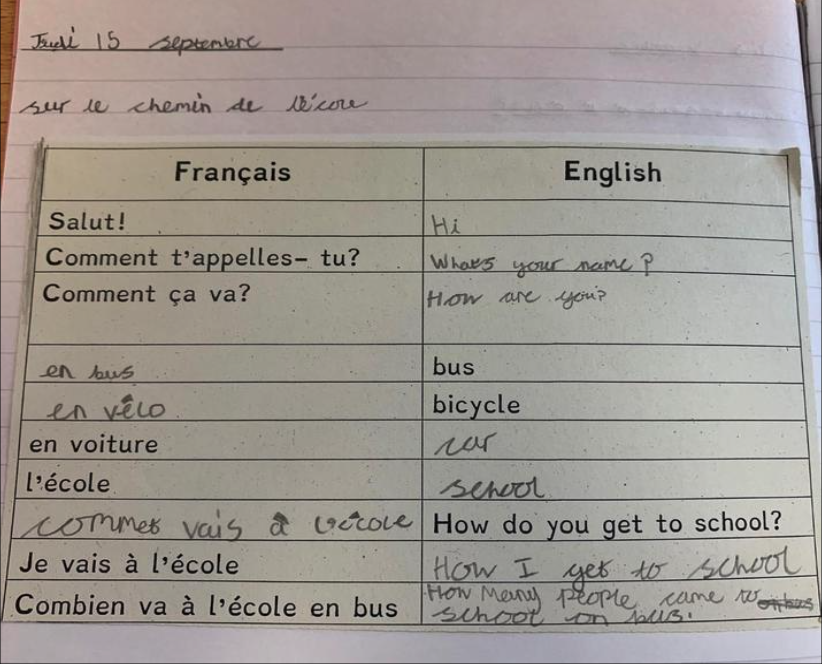 Jeudi 15 septembre
sur le chemin de l'école
Français English
Salut! Hi
Comment t'appelles- tu? What's your name?
Comment ça va? How are you?
en bus bus
en vélo bicycle
en voiture car
l'école school
commet vais à l'école How do you get to school?
Je vais à l'école How I get to school
Combien va à l'école en bus How Many People came to
school on bus.